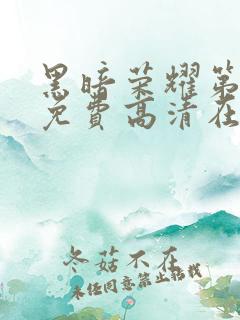 黑暗荣耀第
免费高清在
冬菇不在
未经同意禁止转载